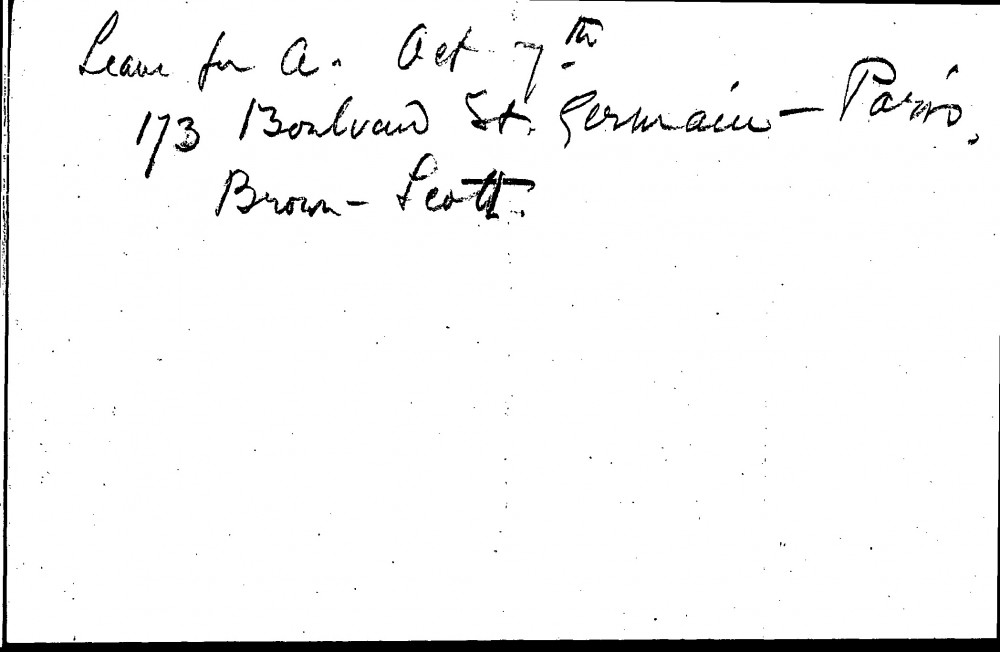 Leave for A. Oct 7th
173 Boulvard St. Germain - Paris.
Brown - Scott.